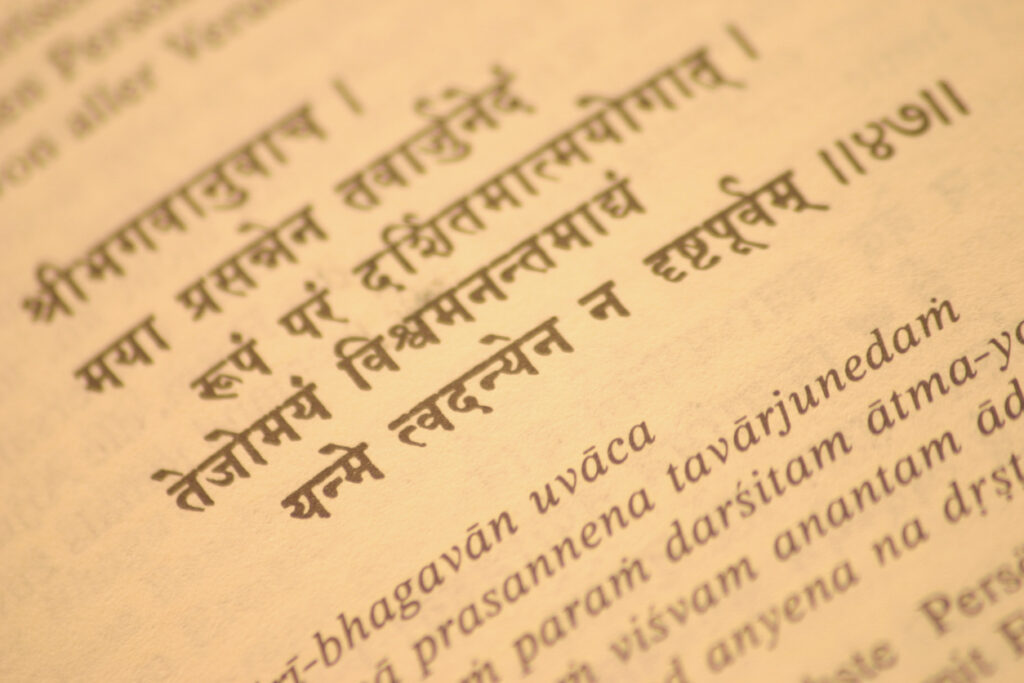 an Person
von aller Veran
श्रीभगवानुवाच ।
मया प्रसन्नेन तवार्जुनेदं
रूपं परं दर्शितमात्मयोगात् ।
तेजोमयं विश्वमनन्तमाद्यं
यन्मे त्वदन्येन न दृष्टपूर्वम् ॥४७॥
rī-bhagavān uvāca
ā prasannena tavārjunedaṁ
ṁ paraṁ darśitam ātma-yo
ṁ viśvam anantam ād
d anyena na dṛṣṭ
hste Persö
mit